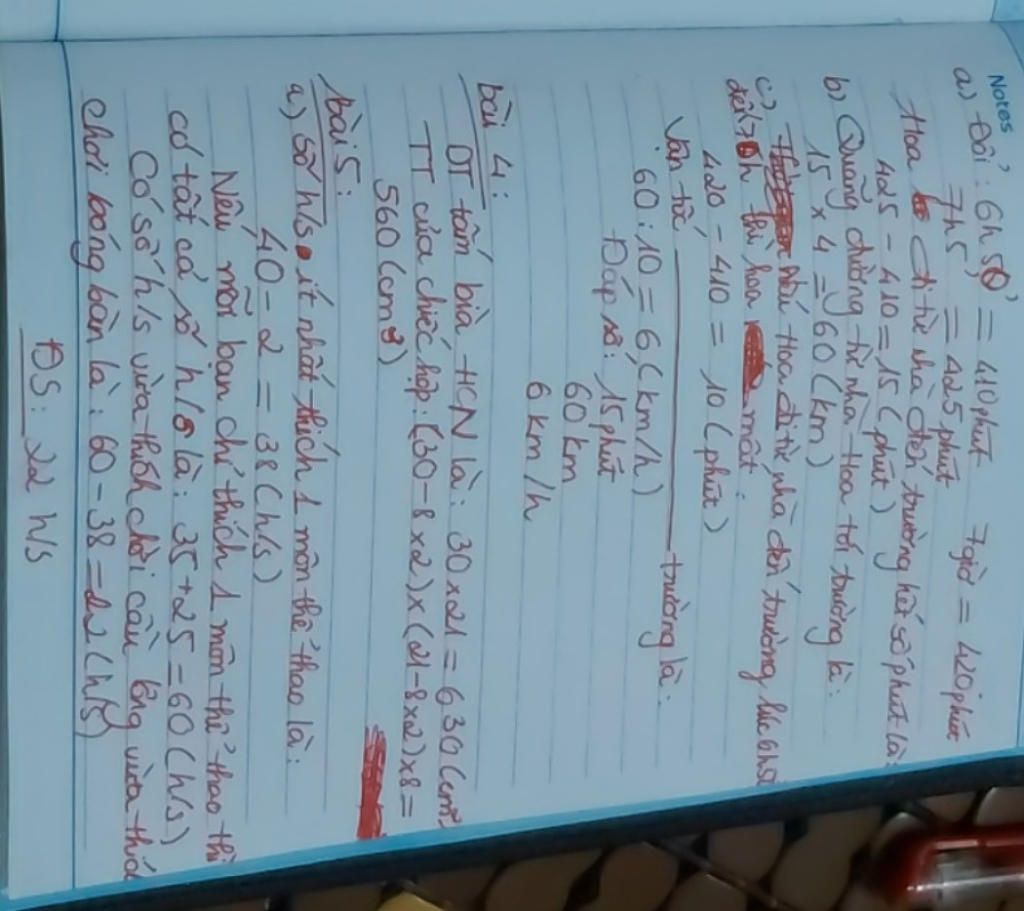 Notes
a) Đổi: 6h50' = 410 phút 7 giờ = 420 phút
7h5' = 425 phút
Hoa đi từ nhà đến trường hết số phút là:
425 - 410 = 15 (phút)
b) Quãng đường từ nhà Hoa tới trường là:
15 x 4 = 60 (km)
c) Nếu Hoa đi từ nhà đến trường lúc 6h50
đến 7h thì hoa mất:
420 - 410 = 10 (phút)
Vận tốc trường là:
60 : 10 = 6 (km/h)
Đáp số: 15 phút
60 km
6 km/h
bài 4:
DT tấm bìa HCN là: 30 x 21 = 630 (cm²)
TT của chiếc hộp: (30 - 8 x 2) x (21 - 8 x 2) x 8 =
560 (cm³)
bài 5:
a) Số h/s ít nhất thích 1 môn thể thao là:
40 - 2 = 38 (h/s)
Nếu mỗi bạn chỉ thích 1 môn thể thao thì
có tất cả số h/s là: 35 + 25 = 60 (h/s)
Có số h/s vừa thích chơi cầu lông vừa thích
chơi bóng bàn là: 60 - 38 = 22 (h/s)
ĐS: 22 h/s